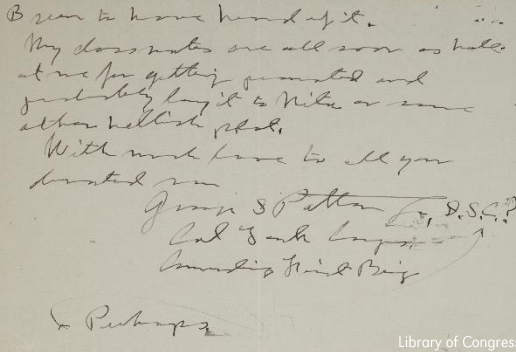 B seem to have heard of it.
My classmates are all sore as hell
at me for getting promoted and
probably lay it to Nita or some
other hellish plot.
With much love to all your
devoted son
George S Patton Jr, D.S.C.?
Col Tank Corps.
Commanding First Brig
x Perhaps
Library of Congress